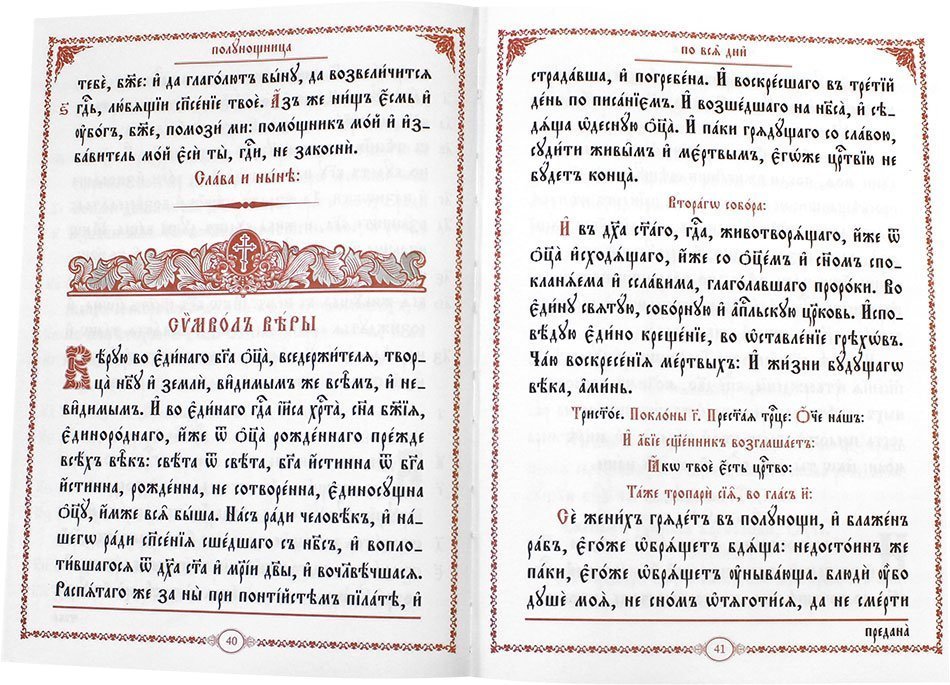 полꙋнощница
тебѐ, бж҃е: и҆ да глаго́лютъ вы́нꙋ, да возвели́чится
ѕ҃ гдⷭ҇ь, лю́бящїи сп҃се́нїе твоѐ. А҆́зъ же ни́щъ є҆́смь и҆
ᲂу҆бо́гъ, бж҃е, помози́ ми: помо́щникъ мо́й и҆ и҆з-
ба́витель мо́й є҆сѝ ты̀, гдⷭ҇и, не закоснѝ.
Сла́ва и ны́нѣ:
СѶ́МВОЛЪ ВѢ́РЫ
Вѣ́рꙋю во є҆ди́наго бг҃а ѻ҆ц҃а̀, вседержи́телѧ, твор-
ца̀ нб҃ꙋ и҆ землѝ, ви́димымъ же всѣ̑мъ, и҆ не-
ви́димымъ. И҆ во є҆ди́наго гдⷭ҇а і҆и҃са хрⷭ҇та̀, сн҃а бж҃їѧ,
є҆диноро́днаго, и҆́же ѿ ѻ҆ц҃а̀ рожде́ннаго пре́жде
всѣ́хъ вѣ̑къ: свѣ́та ѿ свѣ́та, бг҃а и҆́стинна ѿ бг҃а
и҆́стинна, рожде́нна, не сотворе́нна, є҆диносꙋ́щна
ѻ҆ц҃ꙋ, и҆́мже всѧ̑ бы́ша. На́съ ра́ди человѣ̑къ, и҆ на́-
шегѡ ра́ди сп҃се́нїѧ сше́дшаго съ нб҃съ, и҆ вопло-
ти́вшагосѧ ѿ дх҃а ст҃а и҆ мр҃і́и дв҃ы, и҆ вочл҃вѣ́чшасѧ.
Распѧ́таго же за ны̀ при понті́йстѣмъ піла́тѣ, и҆
40
по всѧ̑ дни̑
страда́вша, и҆ погребе́на. И҆ воскре́сшаго въ тре́тїй
де́нь по писа́нїємъ. И҆ возше́дшаго на нб҃са̀, и҆ сѣ-
дѧ́ща ѡ҆деснꙋ́ю ѻ҆ц҃а̀. И҆ па́ки грѧдꙋ́щаго со сла́вою,
сꙋди́ти живы̑мъ и҆ мє́ртвымъ, є҆гѡ́же црⷭ҇твїю не
бꙋ́детъ конца̀.
Втора́гѡ собо́ра:
И҆ въ дх҃а ст҃а́го, гдⷭ҇а, животворѧ́щаго, и҆́же ѿ
ѻ҆ц҃а̀ и҆сходѧ́щаго, и҆́же со ѻ҆ц҃е́мъ и҆ сн҃омъ спо-
кланѧ́ема и҆ ссла́вима, глаго́лавшаго проро́ки. Во
є҆ди́нꙋ свѧтꙋ́ю, собо́рнꙋю и҆ а҆пⷭ҇льскꙋю цр҃ковь. И҆спо-
вѣ́дꙋю є҆ди́но креще́нїе, во ѡ҆ставле́нїе грѣхѡ́въ.
Ча́ю воскресе́нїѧ ме́ртвыхъ: И҆ жи́зни бꙋ́дꙋщагѡ
вѣ́ка, а҆ми́нь.
Тристо́е. Покло́ны г҃. Прест҃а́ѧ трⷪ҇це: Ѻ҆́че на́шъ:
И҆ а҆́бїе сщ҃е́нникъ возглаша́етъ:
Ꙗ҆́кѡ твоѐ є҆́сть црⷭ҇тво:
Та́же тропарѝ сїѧ̑, во гла́съ и҃:
Сѐ жени́хъ грѧде́тъ въ полꙋ́нощи, и҆ блаже́нъ
ра́бъ, є҆го́же ѡ҆брѧ́щетъ бдѧ́ща: недосто́инъ же
па́ки, є҆го́же ѡ҆брѧ́щетъ ᲂу҆ныва́юща. Блюдѝ ᲂу҆̀бо
дꙋшѐ моѧ̀, не сно́мъ ѡ҆тѧготи́сѧ, да не сме́рти
предана̀
41